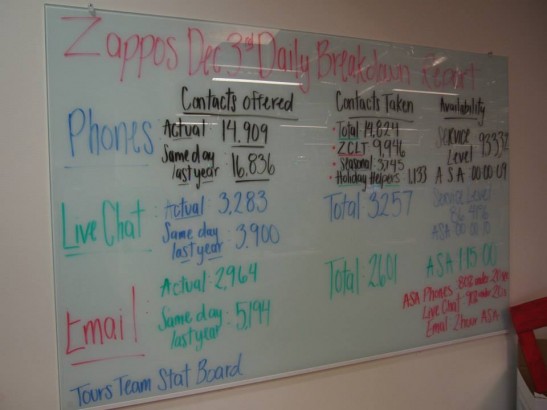 Zappos Dec 3rd Daily Breakdown Report
Contacts Offered
Phones
Actual 14,909
Same day
last year 16,836
Live Chat
Actual: 3,283
Same day
last year: 3,900
Email
Actual: 2,964
Same day
last year: 5,194
Contacts Taken
• Total 14,824
• ZCLT: 9,946
• Seasonal: 3,745
• Holiday Helpers 1,133
Total 3,257
Total: 2601
Availability
Service
Level
ASA 00:00:09
Service Level
ASA
ASA 1:15:00
ASA Phones 80% under 20
Live Chat
Email 2 hour ASA
Tours Team Stat Board